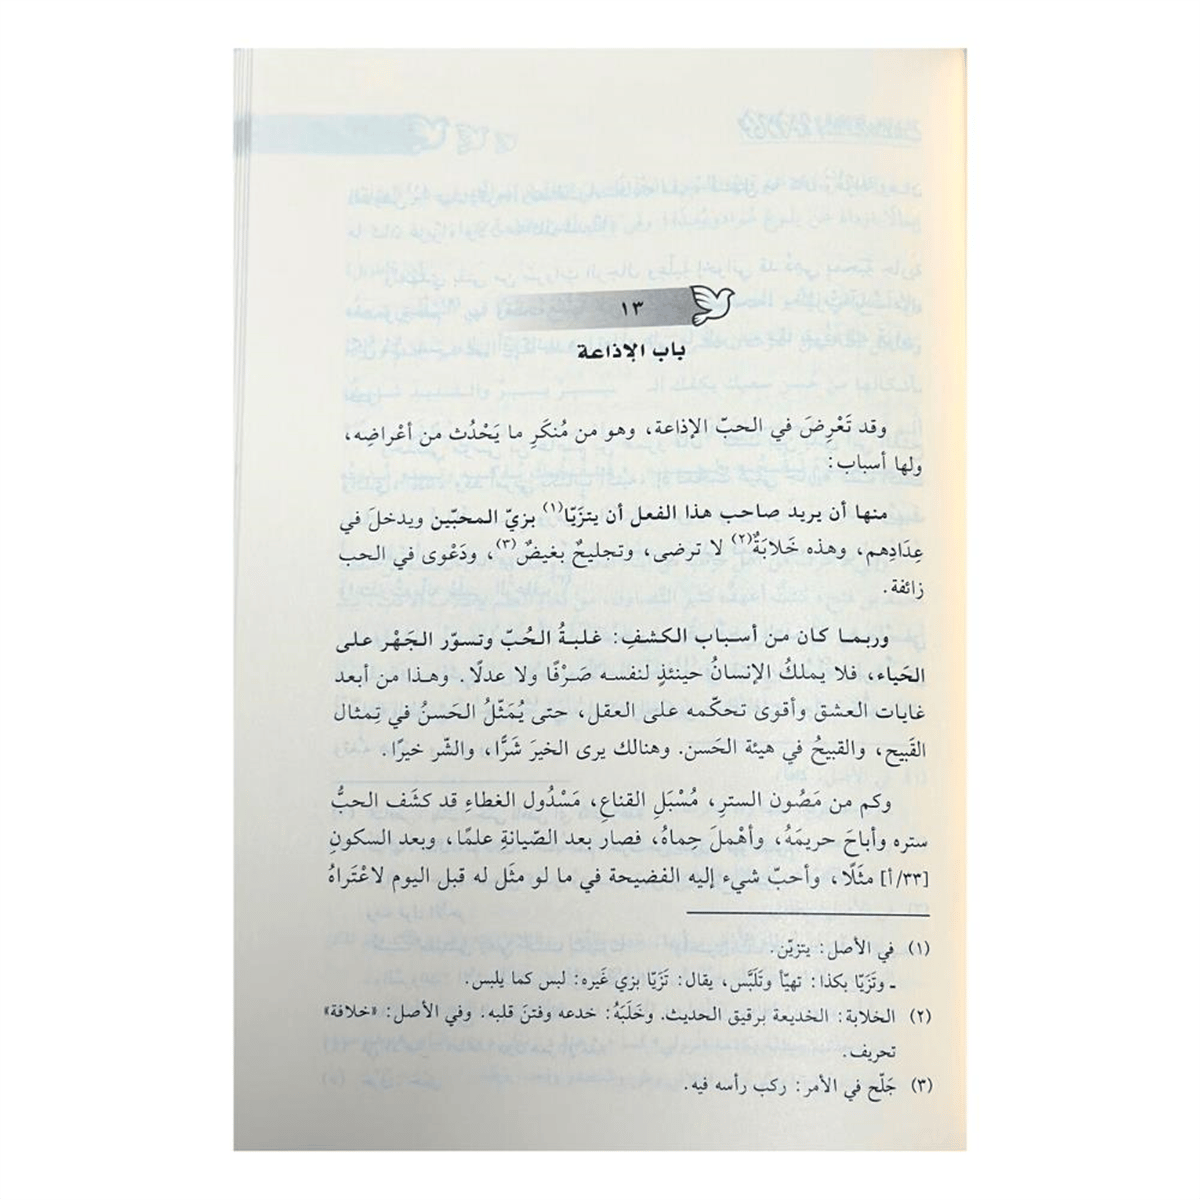 ١٣
باب الإذاعة
وقد تَعْرِضَ في الحبّ الإذاعة، وهو من مُنكَرِ ما يَحْدُث من أعْراضِه،
ولها أسباب:
منها أن يريد صاحب هذا الفعل أن يتزَيّا(١) بزيّ المحبّين ويدخلَ في
عِدَادِهم، وهذه خَلابَةٌ(٢) لا ترضى، وتجليحٌ بغيضٌ(٣)، ودَعْوى في الحب
زائفة.
وربما كان من أسباب الكشفِ: غلبةُ الحُبّ وتسوّر الجَهْر على
الحَياء، فلا يملكُ الإنسانُ حينئذٍ لنفسه صَرْفًا ولا عدلًا. وهذا من أبعد
غايات العشق وأقوى تحكّمه على العقل، حتى يُمَثّلُ الحَسنُ في تِمثال
القَبيح، والقبيحُ في هيئة الحَسن. وهنالك يرى الخيرَ شَرًّا، والشّر خيرًا.
وكم من مَصُون الستر، مُسْبَلِ القناعِ، مَسْدُول الغطاءِ قد كشَف الحبُّ
ستره وأباحَ حريمَهُ، وأهْملَ حِماهُ، فصار بعد الصّيانةِ علمًا، وبعد السكونِ
[٣٣/أ] مثَلًا، وأحبّ شيء إليه الفضيحة في ما لو مثَل له قبل اليوم لاعْتَراهُ
(١) في الأصل: يتزيّن.
ـ وتَزَيّا بكذا: تهيّأ وتَلَبَّس، يقال: تَزَيّا بزي غَيره: لبس كما يلبس.
(٢) الخلابة: الخديعة برقيق الحديث. وخَلَبَهُ: خدعه وفتنَ قلبه. وفي الأصل: «خلافة»
تحريف.
(٣) جَلّح في الأمر: ركب رأسه فيه.